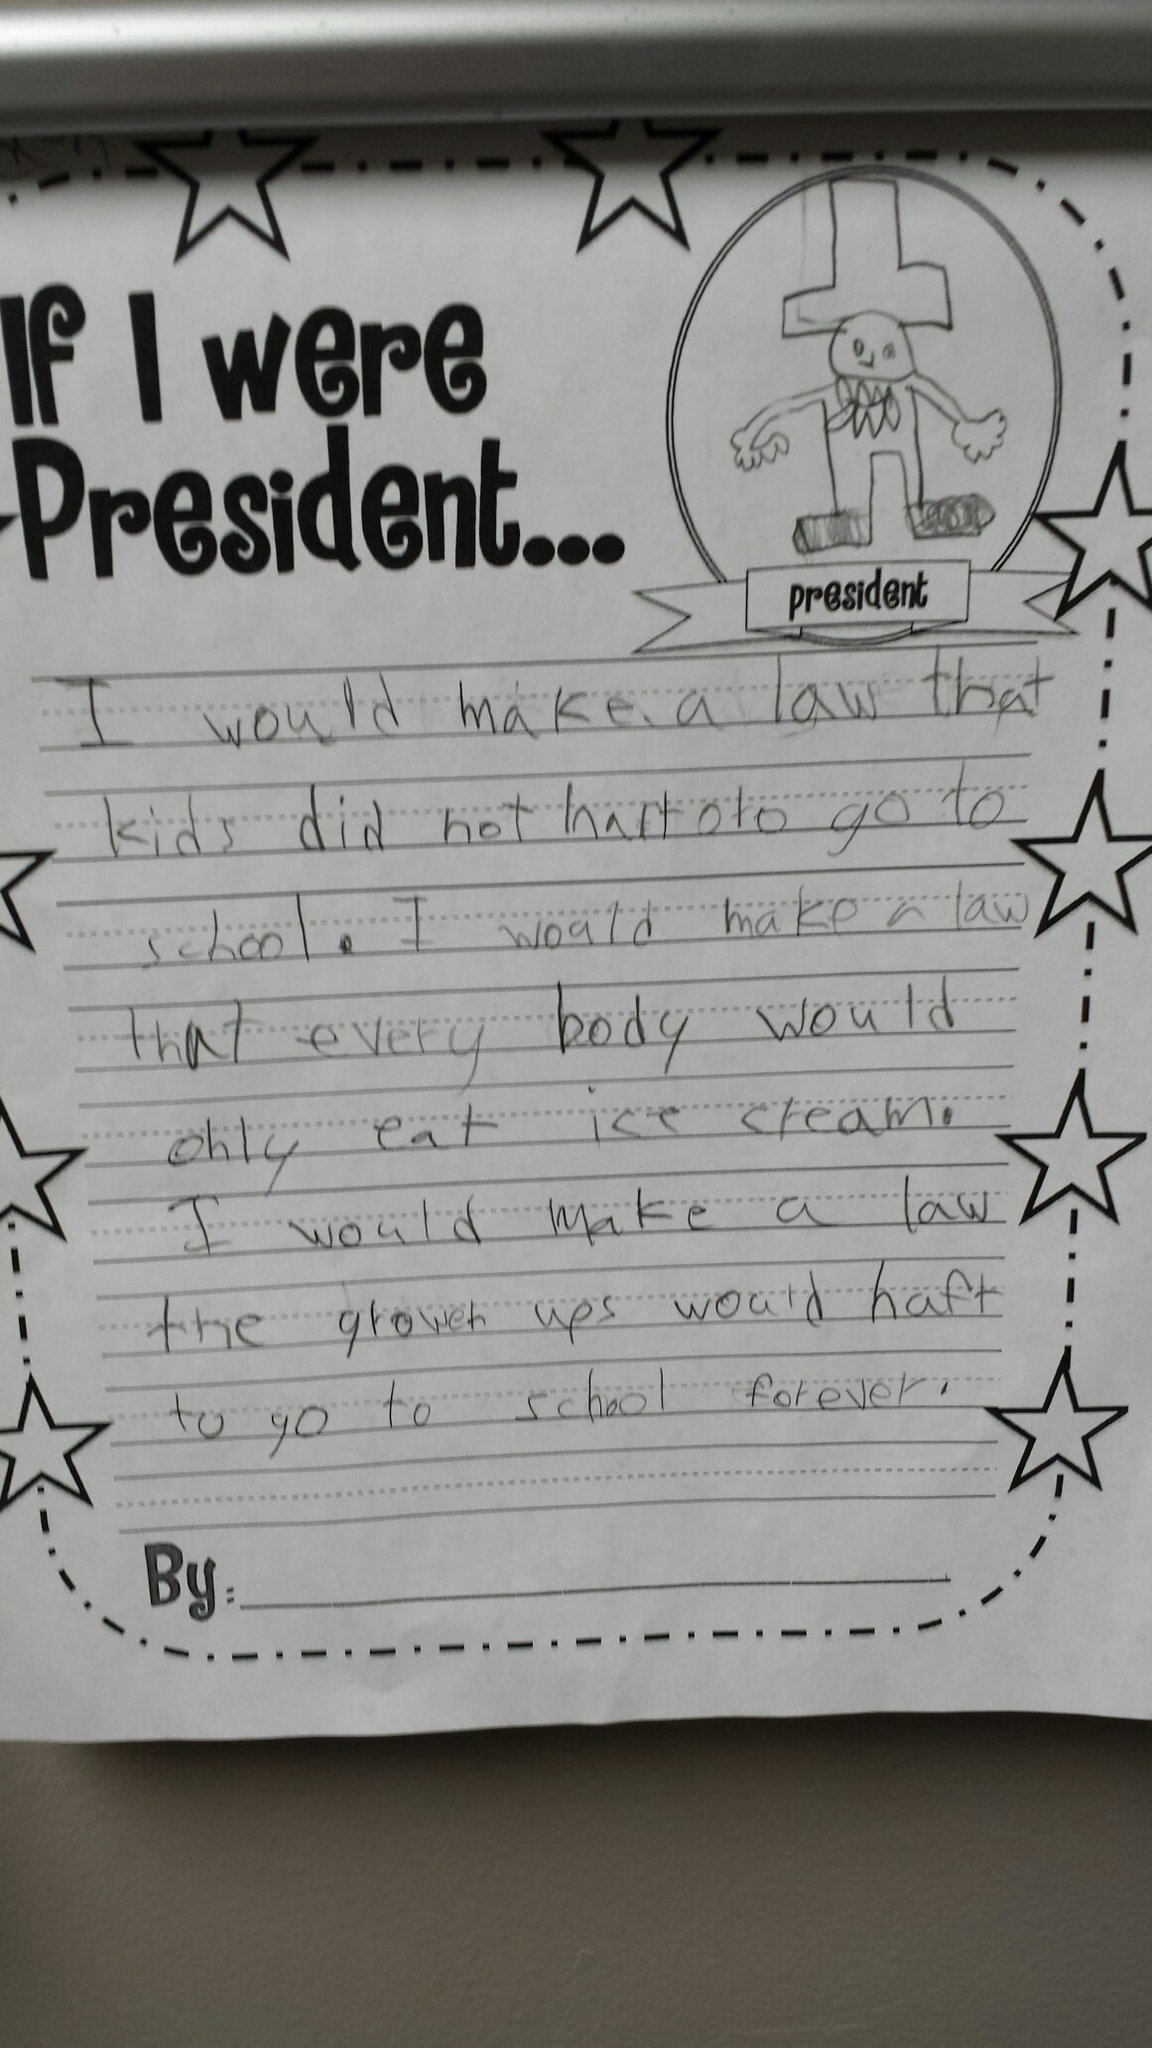 If I were
President...
president
I would make a law that
kids did not haft to go to
school. I would make a law
that every body would
only eat ice cream.
I would make a law
the growen ups would haft
to go to school forever.
By: